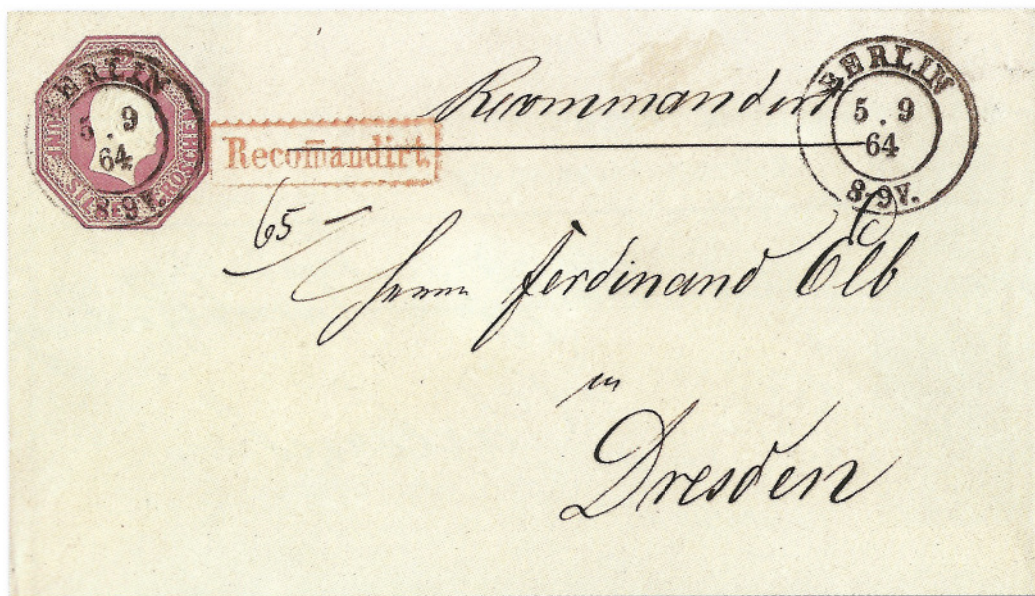 BERLIN
5 . 9
64
8-9V.
Recom̄andirt.
Recommandirt
BERLIN
5 . 9
64
8-9V.
65
Herrn Ferdinand Elb
in
Dresden